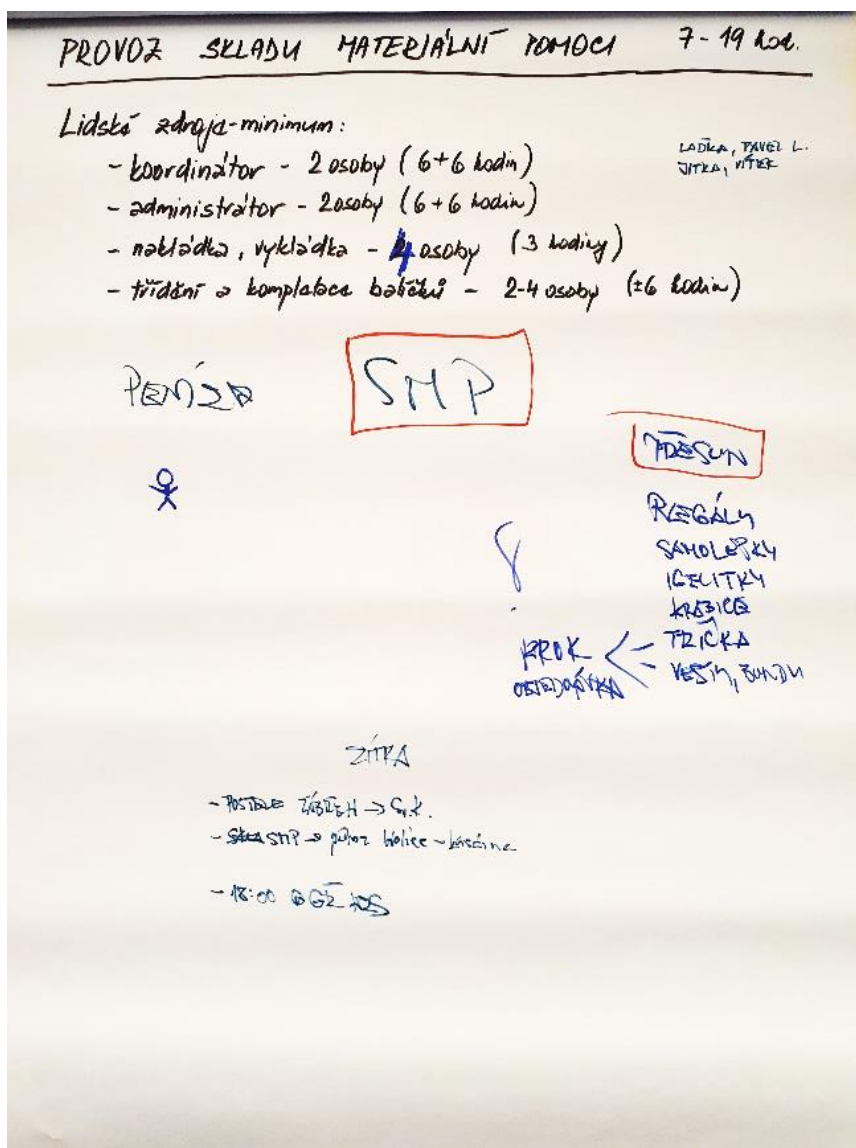 PROVOZ SKLADU MATERIÁLNÍ POMOCI 7-19 hod.
Lidské zdroje-minimum:
- koordinátor - 2 osoby (6+6 hodin)
- administrátor - 2 osoby (6+6 hodin)
- nakládka, vykládka - 4 osoby (3 hodiny)
- třídění a kompletace balíčků - 2-4 osoby (±6 hodin)
LAĎKA, PAVEL L.
JITKA, VÍTEK
PENÍZE
SMP
PŘESUN
REGÁLY
SAMOLEPKY
IGELITKY
KRABICE
TRIČKA
VESTY, BUNDY
KROK
OBJEDNÁVKA
ZÍTRA
- POSTELE ZÁBŘEH → S.K.
- SMP →
- 18:00